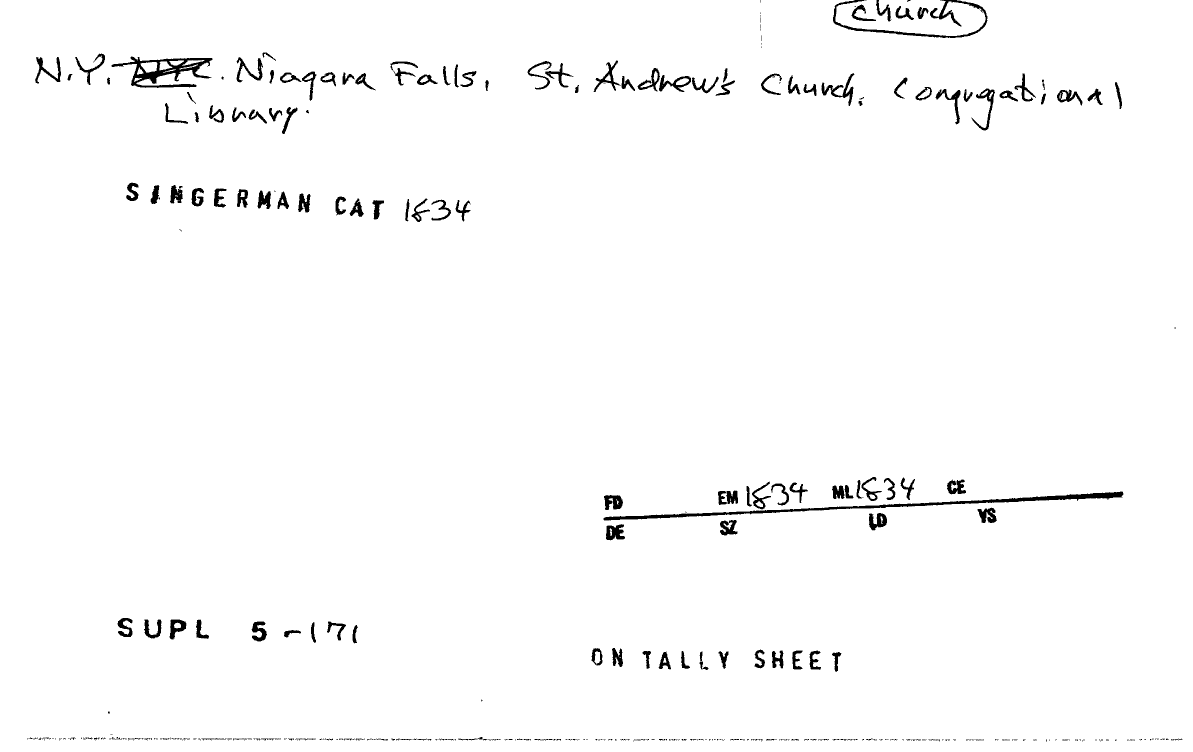 Church
N.Y. NYC. Niagara Falls, St. Andrew's Church. Congregational
Library.
SINGERMAN CAT 1834
FD EM 1834 ML 1834 CE
DE SZ LD YS
SUPL 5-171
ON TALLY SHEET